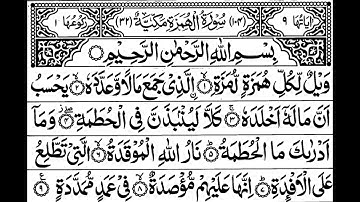 اٰیاتها ۹ (۱۰۴) سُوْرَةُ الْهُمَزَةِ مَكِّيَّةٌ (۳۲) رکوعها ۱
بِسْمِ اللّٰهِ الرَّحْمٰنِ الرَّحِيْمِ
وَيْلٌ لِّكُلِّ هُمَزَةٍ لُّمَزَةٍ ۝۱ الَّذِيْ جَمَعَ مَالًا وَّعَدَّدَهٗ ۝۲ يَحْسَبُ
اَنَّ مَالَهٗٓ اَخْلَدَهٗ ۝۳ كَلَّا لَيُنْۢبَذَنَّ فِي الْحُطَمَةِ ۝۴ وَمَآ
اَدْرٰىكَ مَا الْحُطَمَةُ ۝۵ نَارُ اللّٰهِ الْمُوْقَدَةُ ۝۶ الَّتِيْ تَطَّلِعُ
عَلَى الْاَفْـِٕدَةِ ۝۷ اِنَّهَا عَلَيْهِمْ مُّؤْصَدَةٌ ۝۸ فِيْ عَمَدٍ مُّمَدَّدَةٍ ۝۹